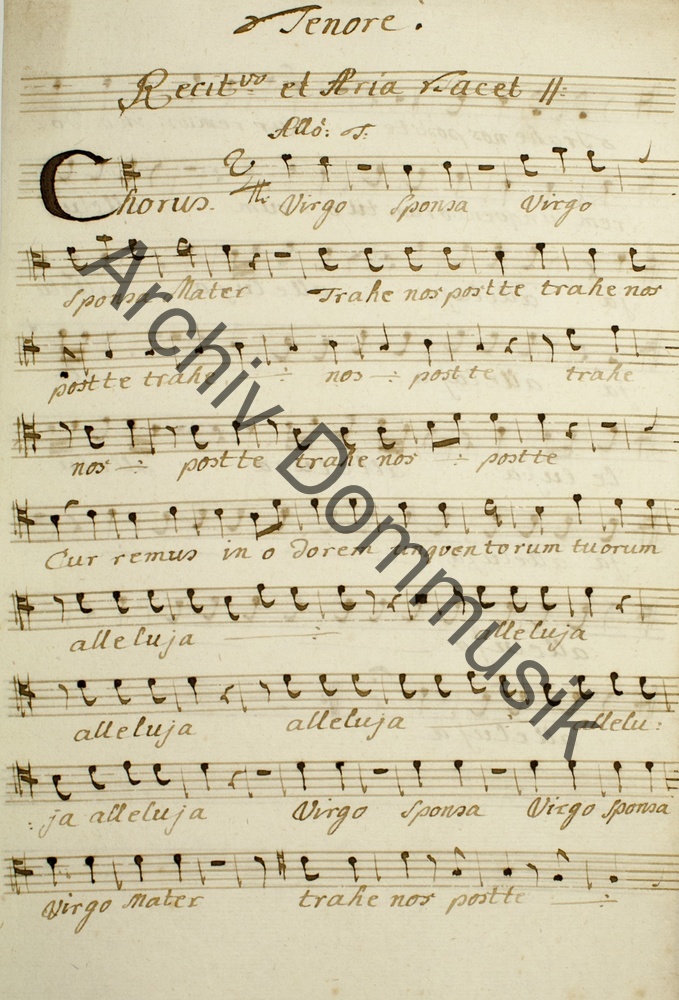 Tenore.
Recit:vo et Aria Tacet
Allo: T:
Chorus. Virgo Sponsa Virgo
Sponsa Mater Trahe nos post te trahe nos
post te trahe -:- nos -:- post te trahe
nos -:- post te trahe nos -:- post te
Cur remus in o dorem unguentorum tuorum
alleluja -:- alleluja
alleluja alleluja -:- allelu:
:ja alleluja Virgo Sponsa Virgo Sponsa
Virgo Mater trahe nos post te -:-
Archiv Dommusik